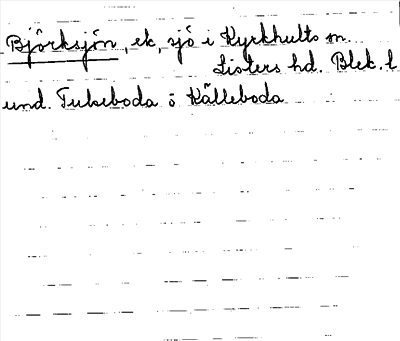 Björksjön, ek, sjö i Kyrkhults sn.
Listers hd. Blek. l
und. Tulseboda o Källeboda